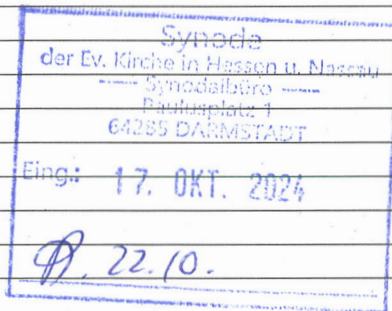 Synode
der Ev. Kirche in Hessen u. Nassau
—— Synodalbüro ——
Paulusplatz 1
64285 DARMSTADT
Eing.: 17. OKT. 2024
22.10.